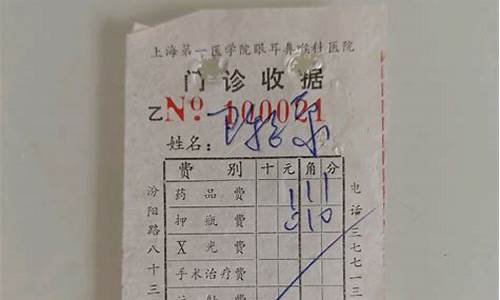 上海第一医学院眼耳鼻喉科医院
门诊收据
乙 No 100021
姓名：
费别 十 元 角 分
药品费 1 1 1
押瓶费 0 1 0
X光费
手术治疗费
汾阳路八十三
电话三七七一三